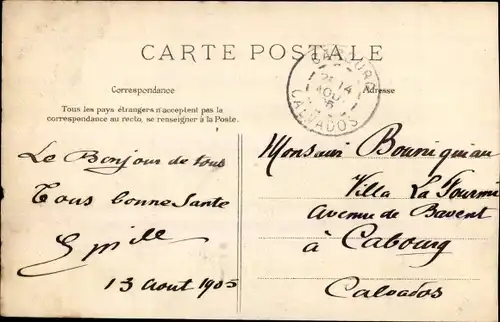 CARTE POSTALE
Correspondance
Adresse
Tous les pays étrangers n'acceptent pas la
correspondance au recto, se renseigner à la Poste.
CABOURG
14
AOUT
CALVADOS
Le Bonjour de tous
Tous bonne Sante
13 Aout 1905
Monsieur Bourriquiau
Villa La Fourmi
Avenue de Bavent
à Cabourg
Calvados